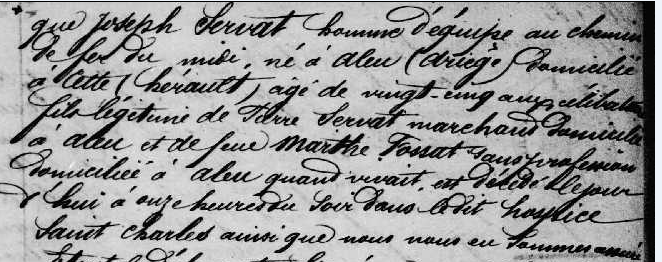 que Joseph Servat homme d'équipe au chemin
de fer du midi, né à Aleu (Ariège) domicilié
à Cette (hérault) agé de vingt-cinq ans, célibataire
fils légitime de Pierre Servat marchand domicilié
à Aleu et de feue Marthe Fossat sans profession
domiciliée à Aleu quand vivait, est décédé le jour
d'hui à onze heures du soir dans ledit hospice
Saint Charles ainsi que nous nous en sommes assuré